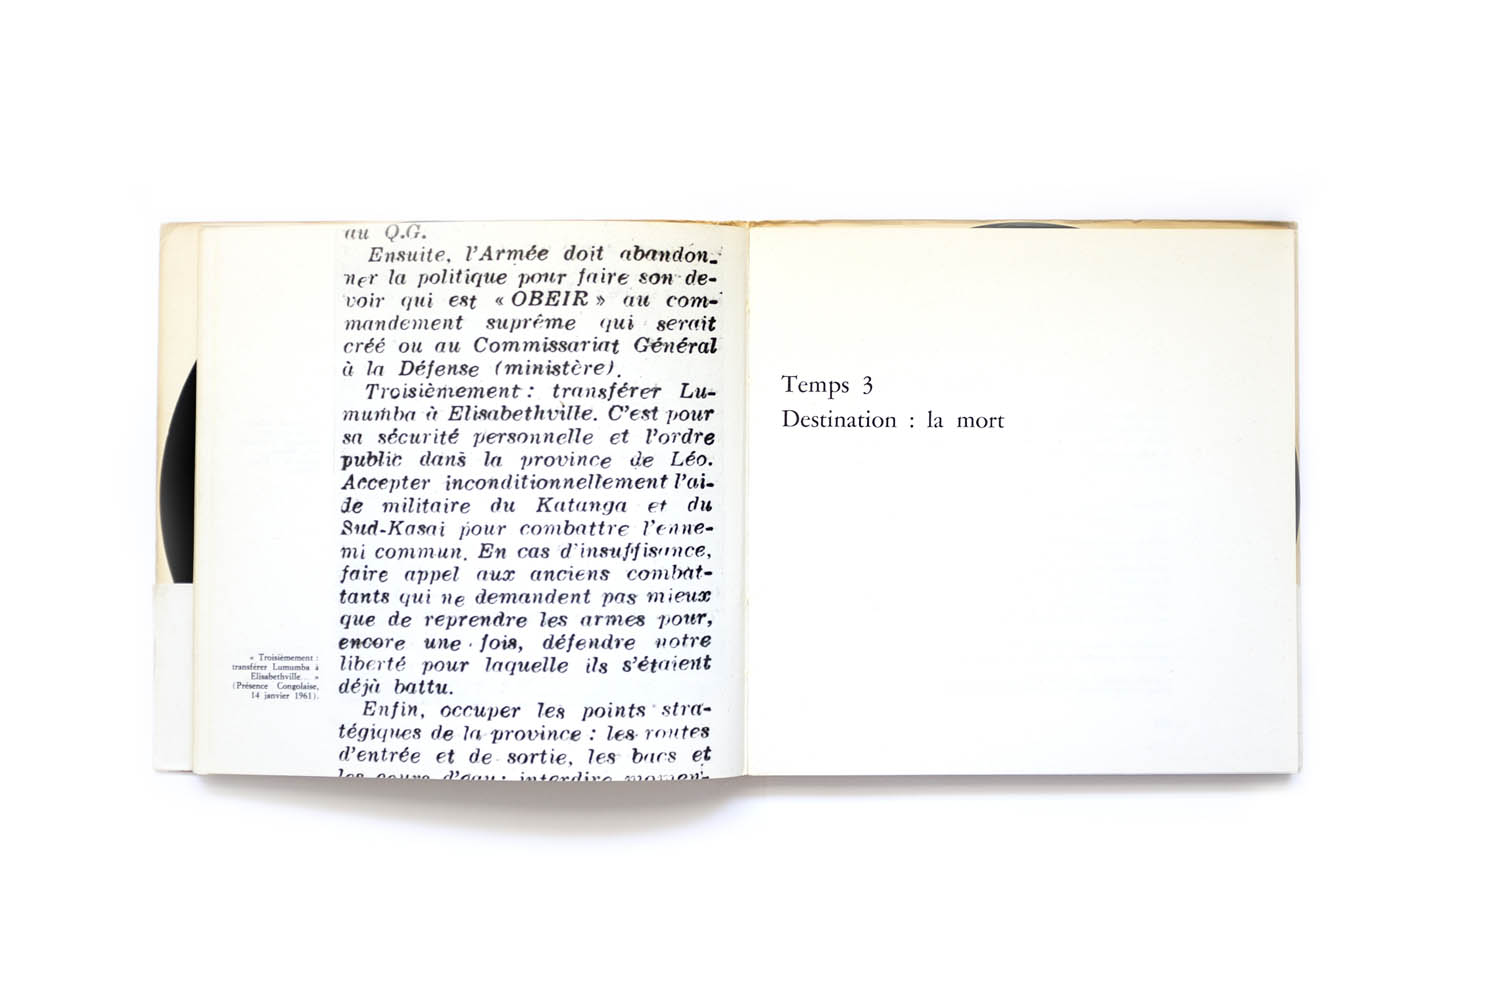 au Q.G.
Ensuite, l'Armée doit abandon-
ner la politique pour faire son de-
voir qui est « OBEIR » au com-
mandement suprême qui serait
créé ou au Commissariat Général
à la Défense (ministère).
Troisièmement : transférer Lu-
mumba à Elisabethville. C'est pour
sa sécurité personnelle et l'ordre
public dans la province de Léo.
Accepter inconditionnellement l'ai-
de militaire du Katanga et du
Sud-Kasai pour combattre l'enne-
mi commun. En cas d'insuffisance,
faire appel aux anciens combat-
tants qui ne demandent pas mieux
que de reprendre les armes pour,
encore une fois, défendre notre
liberté pour laquelle ils s'étaient
déjà battu.
Enfin, occuper les points stra-
tégiques de la province : les routes
d'entrée et de sortie, les bacs et
les cours d'eau; interdire momen-
« Troisièmement :
transférer Lumumba à
Elisabethville... »
(Présence Congolaise,
14 janvier 1961).
Temps 3
Destination : la mort